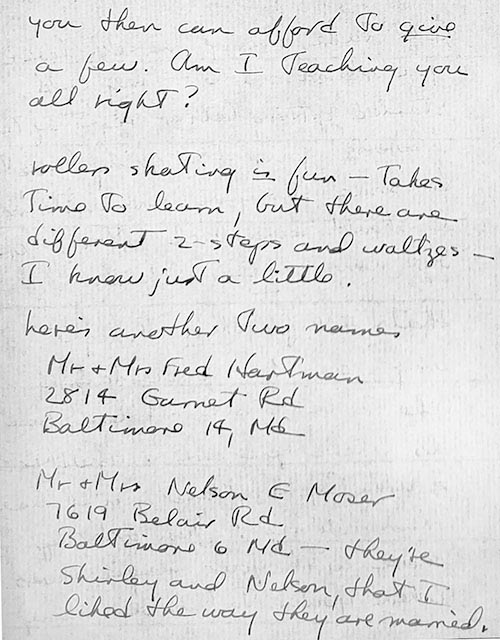 you then can afford to give
a few. Am I Teaching you
all right?
rollers skating is fun – Takes
Time To learn, but there are
different 2-steps and waltzes –
I know just a little.
here's another Two names
Mr + Mrs Fred Hartman
2814 Garnet Rd
Baltimore 14, Md
Mr + Mrs Nelson E Moser
7619 Belair Rd
Baltimore 6 Md – they're
Shirley and Nelson, that I
liked the way they are married.